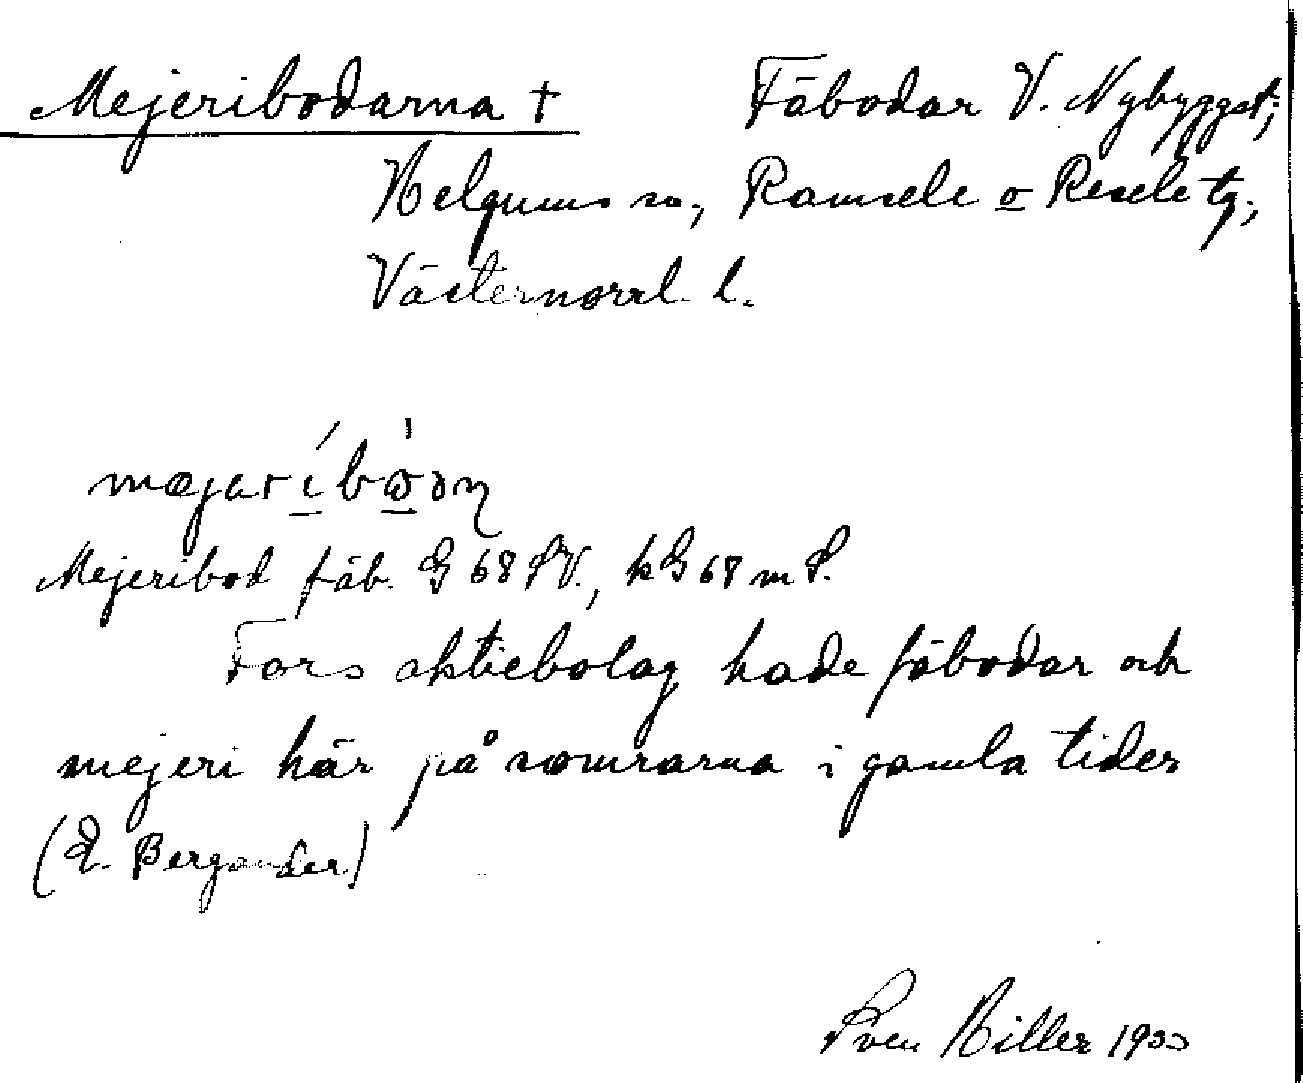 Mejeribodarna † Fäbodar V. Nybygget;
Helgums sn., Ramsele o Resele tg.,
Västernorrl. l.
Mejeribod fäb. G 68 SV., hG 68 m S.
Fors aktiebolag hade fäbodar och
mejeri här på somrarna i gamla tider
(E. Bergander)
Sven Hiller 1933